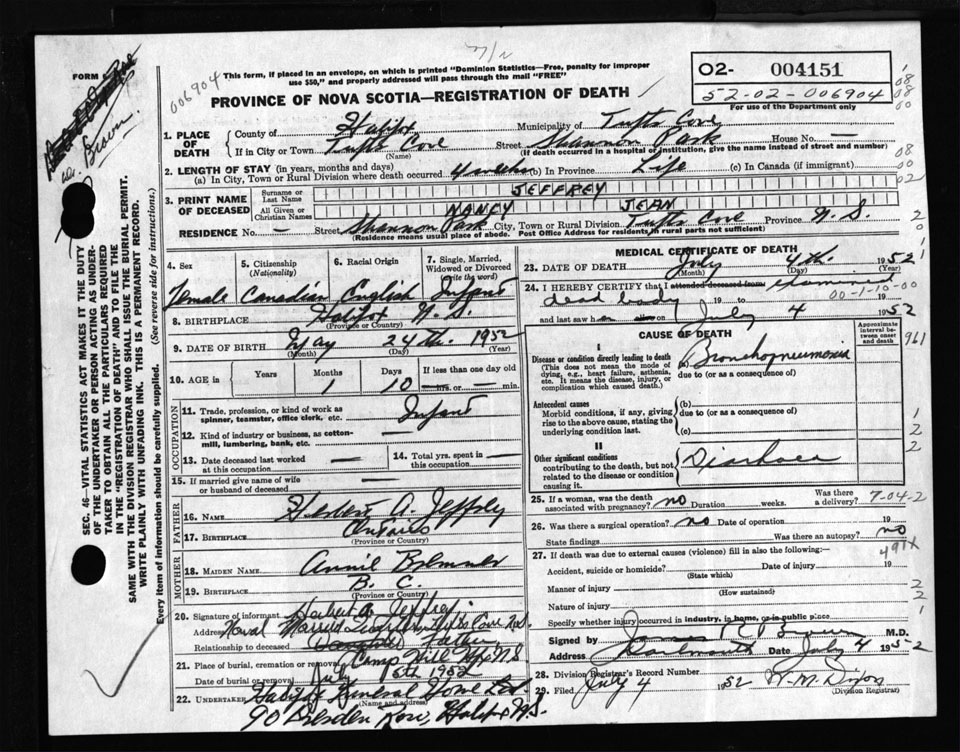 FORM
Dr. Brown.
006904
7/2
This form, if placed in an envelope, on which is printed "Dominion Statistics—Free, penalty for improper
use $50," and properly addressed will pass through the mail "FREE"
PROVINCE OF NOVA SCOTIA—REGISTRATION OF DEATH
02- 004151
52-02-006904
For use of the Department only
1. PLACE OF DEATH
County of Halifax Municipality of Tufts Cove
If in City or Town Tufts Cove Street Shannon Park House No. —
(Name) (If death occurred in a hospital or institution, give the name instead of street and number)
2. LENGTH OF STAY (in years, months and days)
(a) In City, Town or Rural Division where death occurred 4 weeks (b) In Province Life (c) In Canada (if immigrant)
3. PRINT NAME OF DECEASED
Surname or Last Name JEFFREY
All Given or Christian Names NANCY JEAN
RESIDENCE No. — Street Shannon Park City, Town or Rural Division Tufts Cove Province N.S.
(Residence means usual place of abode. Post Office Address for Residents in rural parts not sufficient)
4. Sex
Female
5. Citizenship
(Nationality)
Canadian
6. Racial Origin
English
7. Single, Married,
Widowed or Divorced
(write the word)
Infant
8. BIRTHPLACE Halifax N.S.
(Province or Country)
9. DATE OF BIRTH May 24th. 1952
(Month) (Day) (Year)
10. AGE in Years Months Days If less than one day old
1 10 — hrs. or — min.
OCCUPATION
11. Trade, profession, or kind of work as
spinner, teamster, office clerk, etc. Infant
12. Kind of industry or business, as cotton-
mill, lumbering, bank, etc. —
13. Date deceased last worked
at this occupation —
14. Total yrs. spent in
this occupation —
15. If married give name of wife
or husband of deceased —
FATHER
16. NAME Herbert A. Jeffrey
17. BIRTHPLACE Ontario
(Province or Country)
MOTHER
18. MAIDEN NAME Annie Bremner
19. BIRTHPLACE B. C.
(Province or Country)
20. Signature of informant Herbert A. Jeffrey
Address Naval Married Quarters Tufts Cove N.S.
Relationship to deceased Father
21. Place of burial, cremation or removal Camp Hill Hfx N.S
Date of burial or removal July 5th 1952
22. UNDERTAKER Halifax Funeral Home Ltd
(Name and address)
90 Dresden Row, Halifax N.S.
MEDICAL CERTIFICATE OF DEATH
23. DATE OF DEATH July 4th. 1952
(Month) (Day) (Year)
24. I HEREBY CERTIFY that I attended deceased from examined
dead body 19 to 19 00-1-10-00
and last saw her on July 4 1952
CAUSE OF DEATH
Approximate
interval be-
tween onset
and death
I
Disease or condition directly leading to death
(This does not mean the mode of
dying, e.g., heart failure, asthenia,
etc. It means the disease, injury, or
complication which caused death.)
(a) Bronchopneumonia
due to (or as a consequence of)
Antecedent causes
Morbid conditions, if any, giving
rise to the above cause, stating the
underlying condition last.
(b)
due to (or as a consequence of)
(c)
II
Other significant conditions
contributing to the death, but not
related to the disease or condition
causing it.
Diarhoea
25. If a woman, was the death
associated with pregnancy? no Duration weeks. Was there a delivery? 7-04-2
26. Was there a surgical operation? no Date of operation 19
State findings Was there an autopsy? no
491X
27. If death was due to external causes (violence) fill in also the following:—
Accident, suicide or homicide? Date of injury 19
(State which)
Manner of injury
(How sustained)
Nature of injury
Specify whether injury occurred in industry, in home, or in public place
Signed by M.D.
Address Dartmouth Date July 4 1952
28. Division Registrar's Record Number
29. Filed July 4 1952 W. M. Dixon
(Division Registrar)
SEC. 46—VITAL STATISTICS ACT MAKES IT THE DUTY
OF THE UNDERTAKER OR PERSON ACTING AS UNDER-
TAKER TO OBTAIN ALL THE PARTICULARS REQUIRED
IN THE "REGISTRATION OF DEATH" AND TO FILE THE
SAME WITH THE DIVISION REGISTRAR WHO SHALL ISSUE THE BURIAL PERMIT.
WRITE PLAINLY WITH UNFADING INK. THIS IS A PERMANENT RECORD.
Every item of information should be carefully supplied. (See reverse side for instructions.)